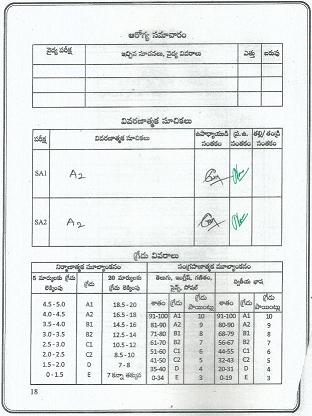 ఆరోగ్య సమాచారం
వైద్య పరీక్ష ఇచ్చిన సూచనలు, వైద్య వివరాలు ఎత్తు బరువు
వివరణాత్మక సూచికలు
పరీక్ష వివరణాత్మక సూచికలు ఉపాధ్యాయుడి సంతకం ప్ర.ఉ. సంతకం తల్లి/ తండ్రి సంతకం
SA1 A2
SA2 A2
గ్రేడు వివరాలు
నిర్మాణాత్మక మూల్యాంకనం సంగ్రహణాత్మక మూల్యాంకనం
5 మార్కులకు గ్రేడు లెక్కింపు గ్రేడు 20 మార్కులకు గ్రేడు లెక్కింపు తెలుగు, ఇంగ్లీష్, గణితం, సైన్స్, సోషల్ ద్వితీయ భాష
శాతం గ్రేడు గ్రేడు పాయింట్లు శాతం గ్రేడు గ్రేడు పాయింట్లు
4.5 - 5.0 A1 18.5 - 20 91-100 A1 10 90-100 A1 10
4.0 - 4.5 A2 16.5 - 18 81-90 A2 9 80-90 A2 9
3.5 - 4.0 B1 14.5 - 16 71-80 B1 8 68-79 B1 8
3.0 - 3.5 B2 12.5 - 14 61-70 B2 7 56-67 B2 7
2.5 - 3.0 C1 10.5 - 12 51-60 C1 6 44-55 C1 6
2.0 - 2.5 C2 8.5 - 10 41-50 C2 5 32-43 C2 5
1.5 - 2.0 D 7 - 8 35-40 D 4 20-31 D 4
0 - 1.5 E 7 కన్నా తక్కువ 0-34 E 3 0-19 E 3
18